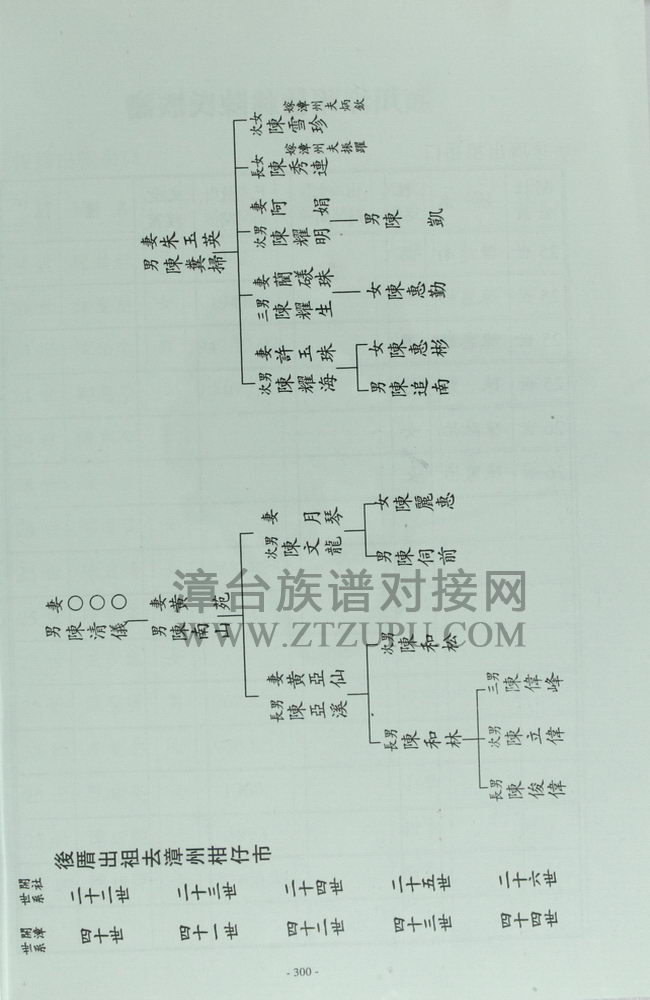 開漳世系
開社世系
後厝出祖去漳州柑仔市
四十世
二十二世
四十一世
二十三世
四十二世
二十四世
四十三世
二十五世
四十四世
二十六世
男陳清儀
妻○○○
男陳南山
妻黃苑
長男陳亞溪
妻黃亞仙
次男陳文龍
妻月琴
長男陳和林
次男陳和松
男陳伺前
女陳麗惠
長男陳俊偉
次男陳立偉
三男陳偉峰
男陳糞掃
妻朱玉英
次男陳耀海
妻許玉珠
三男陳耀生
妻藺磙珠
次男陳耀明
妻阿娟
長女陳秀連
嫁漳州夫振躍
次女陳雪珍
嫁漳州夫炳欽
男陳追南
女陳惠彬
女陳惠勤
男陳凱
漳台族谱对接网
WWW.ZTZUPU.COM
- 300 -